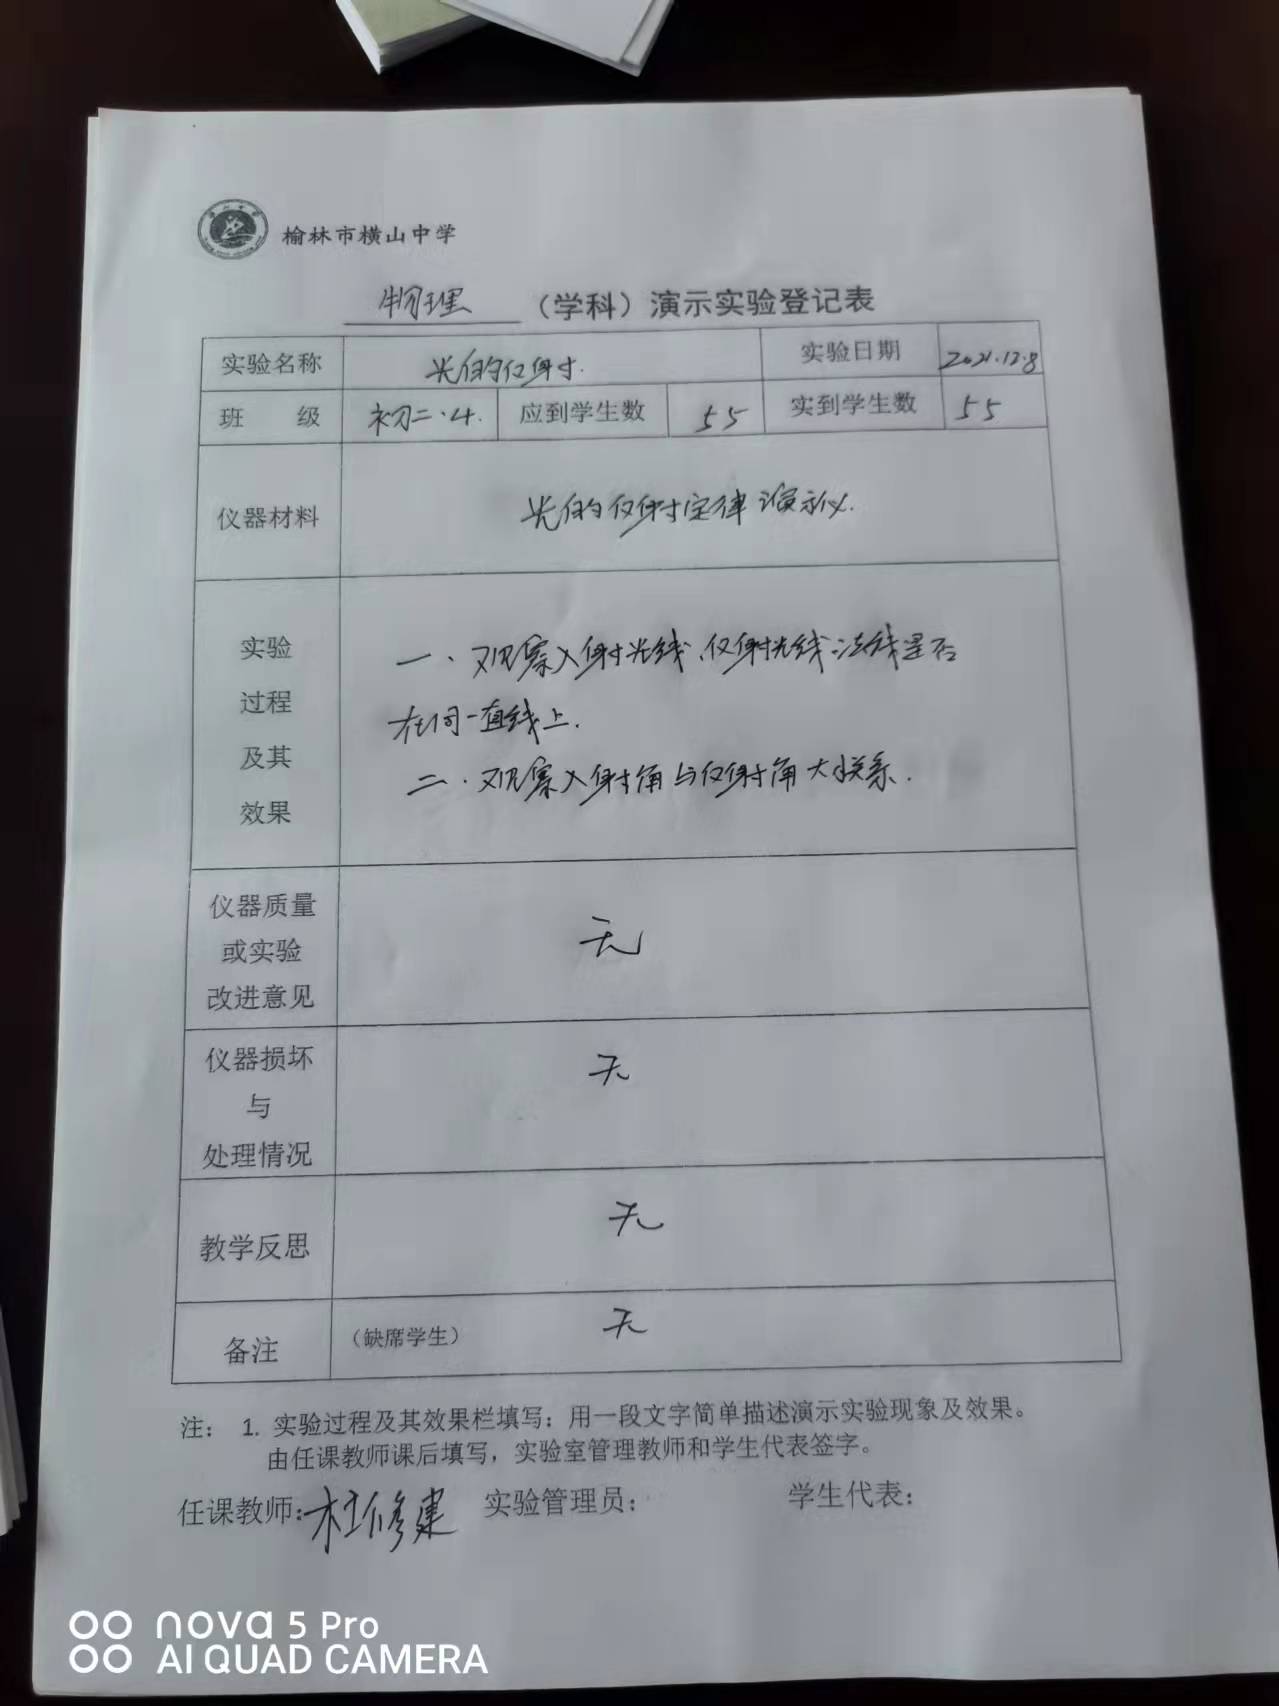 榆林市横山中学
物理（学科）演示实验登记表
实验名称 光的反射. 实验日期 2021.12.8
班 级 初二.4. 应到学生数 55 实到学生数 55
仪器材料 光的反射定律演示仪.
实验
过程
及其
效果
一.观察入射光线、反射光线、法线是否
在同一直线上.
二.观察入射角与反射角大小关系.
仪器质量
或实验
改进意见
无
仪器损坏
与
处理情况
无
教学反思 无
备注 （缺席学生） 无
注： 1. 实验过程及其效果栏填写：用一段文字简单描述演示实验现象及效果。
由任课教师课后填写，实验室管理教师和学生代表签字。
任课教师：杜修建 实验管理员： 学生代表：
nova 5 Pro
AI QUAD CAMERA